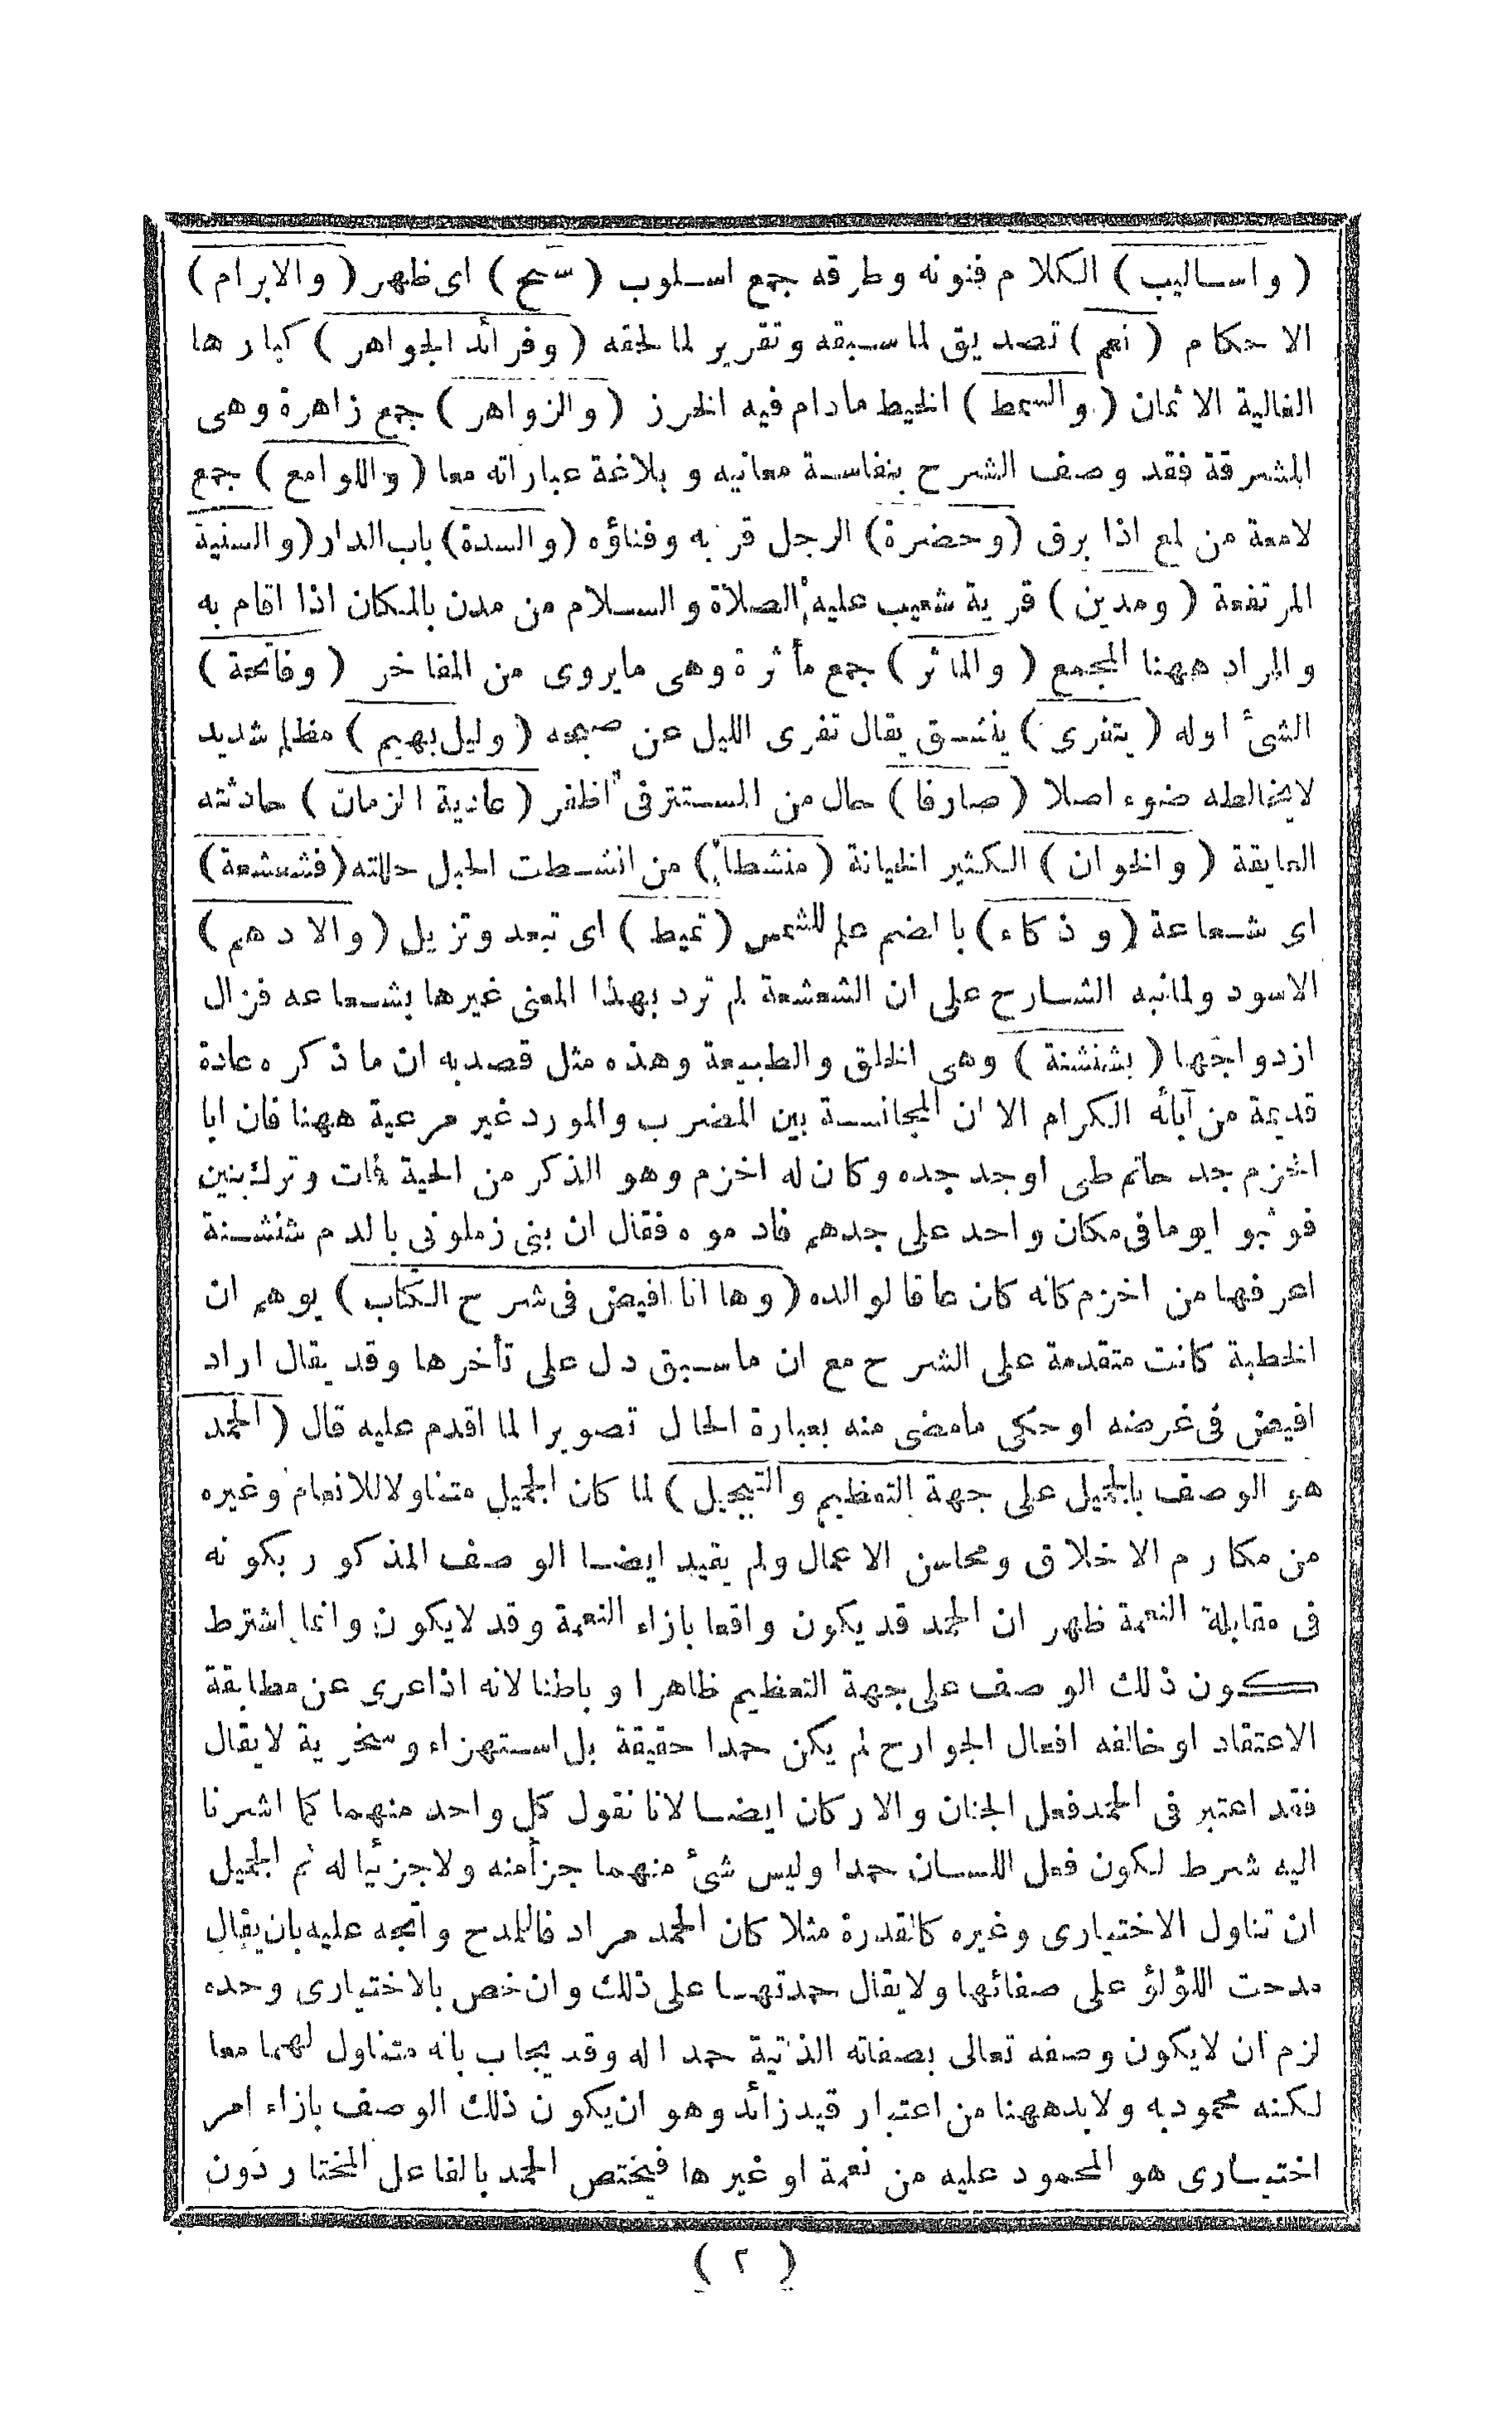 ( واساليب ) الكلام فنونه وطرقه جمع اسلوب ( سنح ) اى ظهر ( والابرام )
الاحكام ( نعم ) تصديق لما سبقه وتقرير لما لحقه ( وفرائد الجواهر ) كبارها
الغالية الاثمان ( والسمط ) الخيط مادام فيه الخرز ( والزواهر ) جمع زاهرة وهى
المشرقة فقد وصف الشرح بنفاسة معانيه وبلاغة عباراته معا ( واللوامع ) جمع
لامعة من لمع اذا برق ( وحضرة ) الرجل قربه وفناؤه ( والسدة ) باب الدار ( والسنية
المرتفعة ( ومدين ) قرية شعيب عليه الصلاة والسلام من مدن بالمكان اذا اقام به
والمراد ههنا المجمع ( والمآثر ) جمع مأثرة وهى مايروى من المفاخر ( وفاتحة )
الشئ اوله ( يتفرى ) ينشق يقال تفرى الليل عن صبحه ( وليل بهيم ) مظلم شديد
لايخالطه ضوء اصلا ( صارفا ) حال من المستتر فى اظفر ( عادية الزمان ) حادثته
العايقة ( والخوان ) الكثير الخيانة ( منشطا ) من انشطت الحبل حللته ( فشعشعة )
اى شعاعة ( وذكاء ) بالضم علم للشمس ( تميط ) اى تبعد وتزيل ( والادهم )
الاسود ولمانبه الشارح على ان الشعشعة لم ترد بهذا المعنى غيرها بشعاعه فزال
ازدواجها ( بشنشنة ) وهى الخلق والطبيعة وهذه مثل قصد به ان ماذكره عادة
قديمة من آبائه الكرام الا ان المجانسة بين المضرب والمورد غير مرعية ههنا فان ابا
اخزم جد حاتم طى اوجد جده وكان له اخزم وهو الذكر من الحية فمات وترك بنين
فوثبوا يوما فى مكان واحد على جدهم فادموه فقال ان بنى زملونى بالدم شنشنة
اعرفها من اخزم كانه كان عاقا لوالده ( وها انا افيض فى شرح الكتاب ) يوهم ان
الخطبة كانت متقدمة على الشرح مع ان ماسبق دل على تأخرها وقد يقال اراد
افيض فى غرضه اوحكى مامضى منه بعبارة الحال تصويرا لما اقدم عليه قال ( الحمد
هو الوصف بالجميل على جهة التعظيم والتبجيل ) لما كان الجميل متناولا للانعام وغيره
من مكارم الاخلاق ومحاسن الاعمال ولم يقيد ايضا الوصف المذكور بكونه
فى مقابلة النعمة ظهر ان الحمد قد يكون واقعا بازاء النعمة وقد لايكون وانما اشترط
كون ذلك الوصف على جهة التعظيم ظاهرا وباطنا لانه اذا عرى عن مطابقة
الاعتقاد اوخالفه افعال الجوارح لم يكن حمدا حقيقة بل استهزاء وسخرية لايقال
فقد اعتبر فى الحمد فعل الجنان والاركان ايضا لانا نقول كل واحد منهما كما اشرنا
اليه شرط لكون فعل اللسان حمدا وليس شئ منهما جزأ منه ولا جزئيا له ثم الجميل
ان تناول الاختيارى وغيره كالقدرة مثلا كان الحمد مرادفا للمدح واتجه عليه بان يقال
مدحت اللؤلؤ على صفائها ولايقال حمدتها على ذلك وان خص بالاختيارى وحده
لزم ان لايكون وصفه تعالى بصفاته الذاتية حمدا له وقد يجاب بانه متناول لهما معا
لكنه محمود به ولابد ههنا من اعتبار قيد زائد وهو ان يكون ذلك الوصف بازاء امر
اختيارى هو المحمود عليه من نعمة او غيرها فيختص الحمد بالفاعل المختار دون
( ٢ )